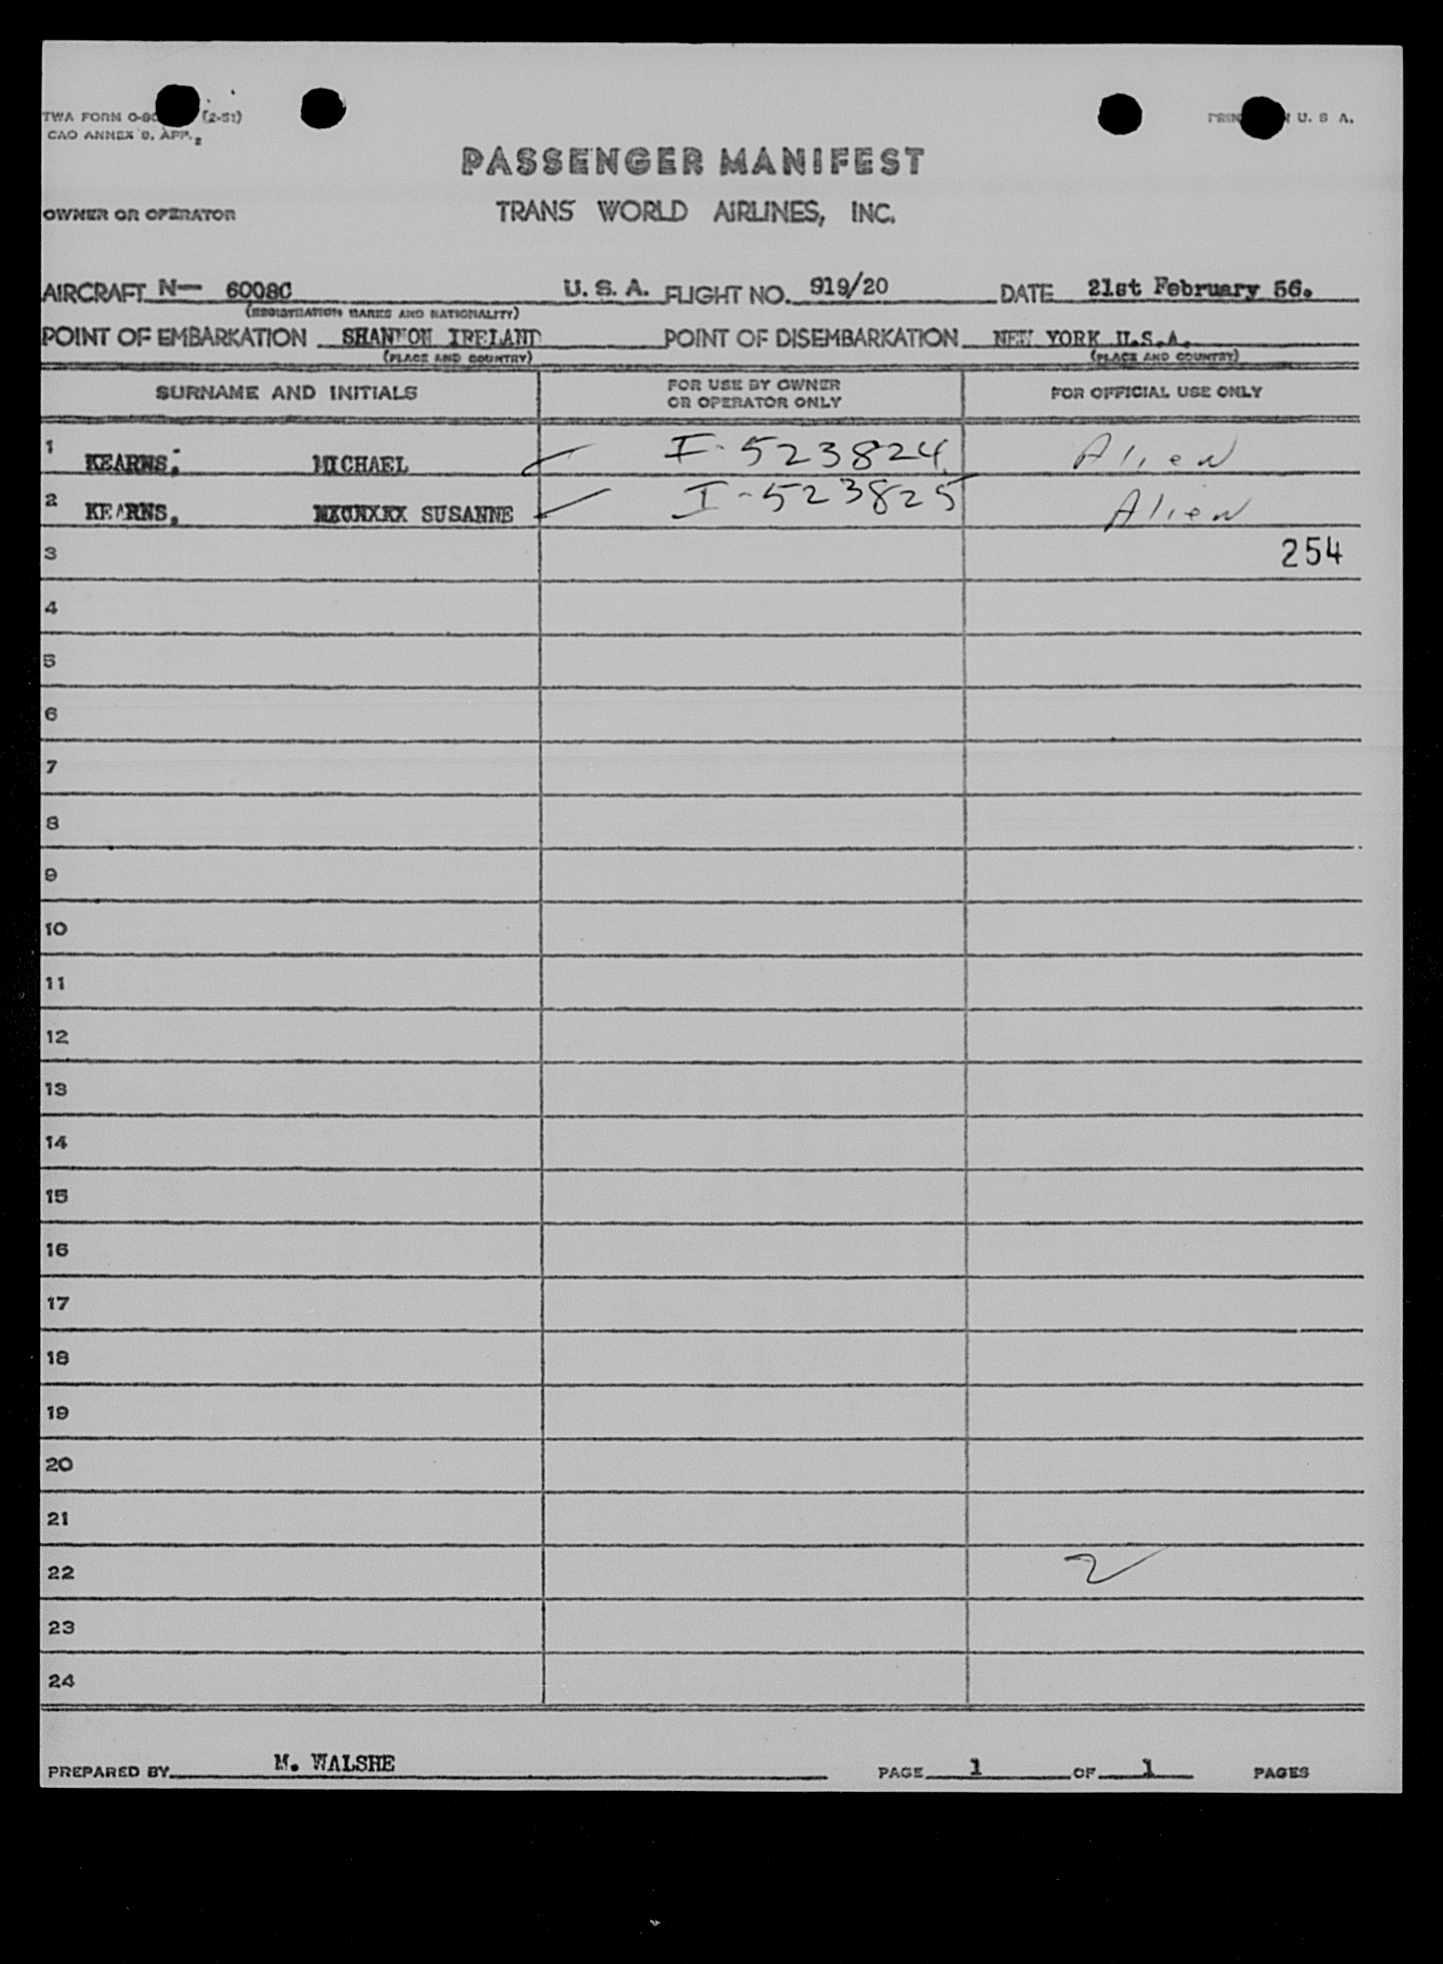 TWA FORM O-80 (2-51)
CAO ANNEX 9, APP. 2
U. S. A.
PASSENGER MANIFEST
OWNER OR OPERATOR TRANS WORLD AIRLINES, INC.
AIRCRAFT N— 6008C U. S. A. FLIGHT NO. 919/20 DATE 21st February 56.
(REGISTRATION MARKS AND NATIONALITY)
POINT OF EMBARKATION SHANNON IRELAND POINT OF DISEMBARKATION NEW YORK U.S.A.
(PLACE AND COUNTRY) (PLACE AND COUNTRY)
SURNAME AND INITIALS FOR USE BY OWNER OR OPERATOR ONLY FOR OFFICIAL USE ONLY
1 KEARNS. MICHAEL I-523824 Alien
2 KEARNS. SUSANNE I-523825 Alien
3 254
4
5
6
7
8
9
10
11
12
13
14
15
16
17
18
19
20
21
22 2
23
24
PREPARED BY M. WALSHE PAGE 1 OF 1 PAGES